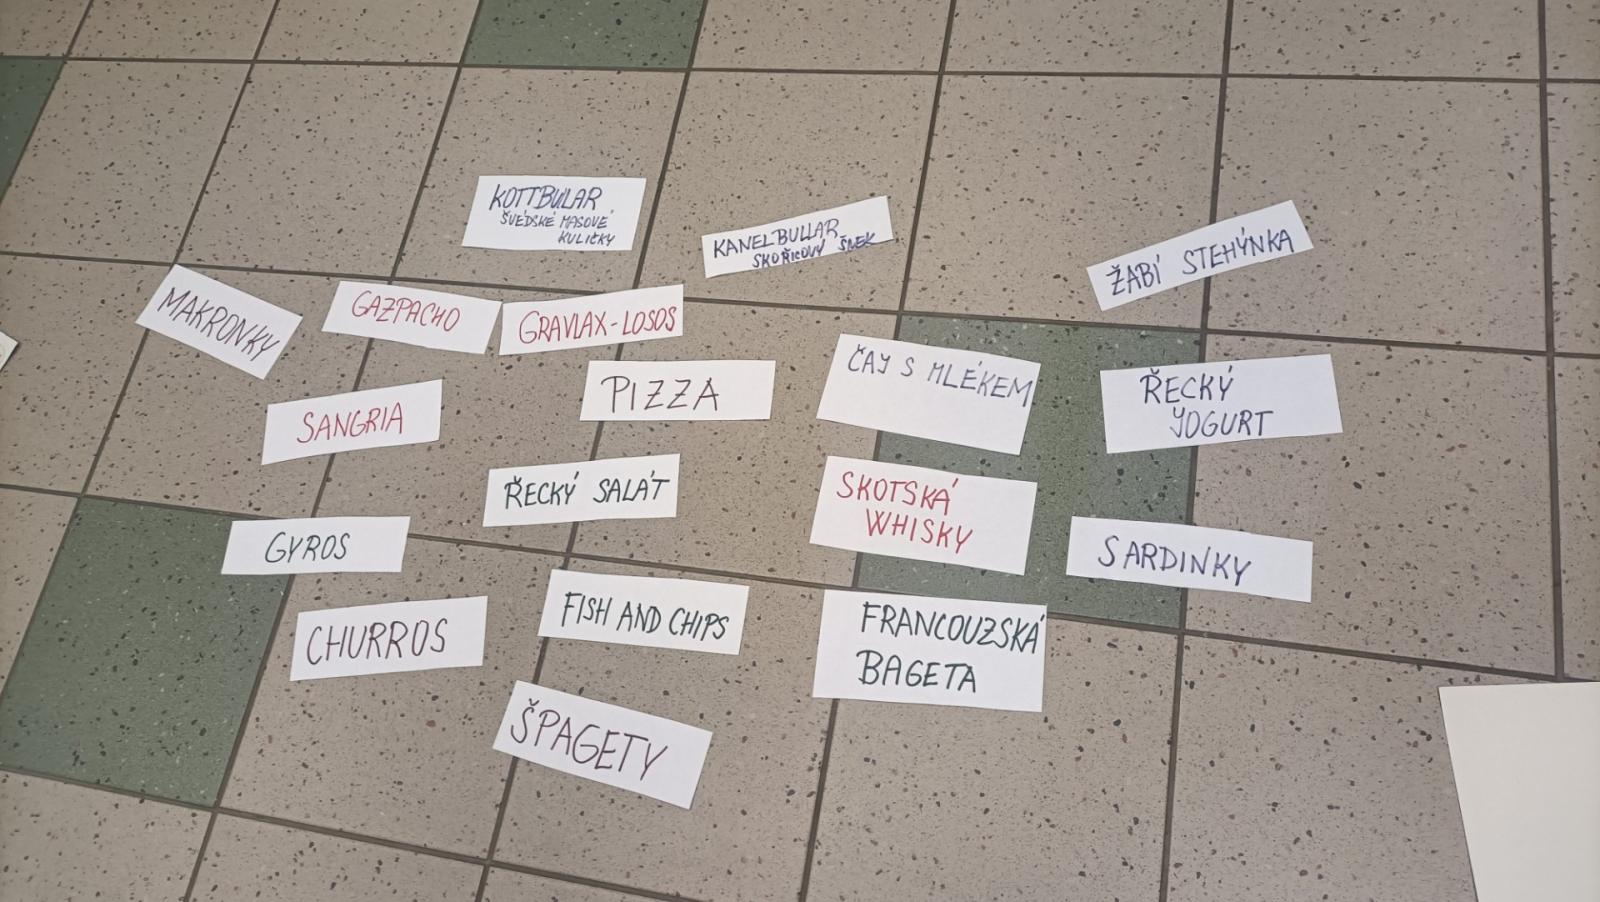 KOTTBULAR
ŠVÉDSKÉ MASOVÉ
KULIČKY
KANELBULLAR
SKOŘICOVÝ ŠNEK
ŽABÍ STEHÝNKA
MAKRONKY
GAZPACHO
GRAVLAX-LOSOS
PIZZA
ČAJ S MLÉKEM
ŘECKÝ
JOGURT
SANGRIA
ŘECKÝ SALÁT
SKOTSKÁ
WHISKY
GYROS
SARDINKY
CHURROS
FISH AND CHIPS
FRANCOUZSKÁ
BAGETA
ŠPAGETY